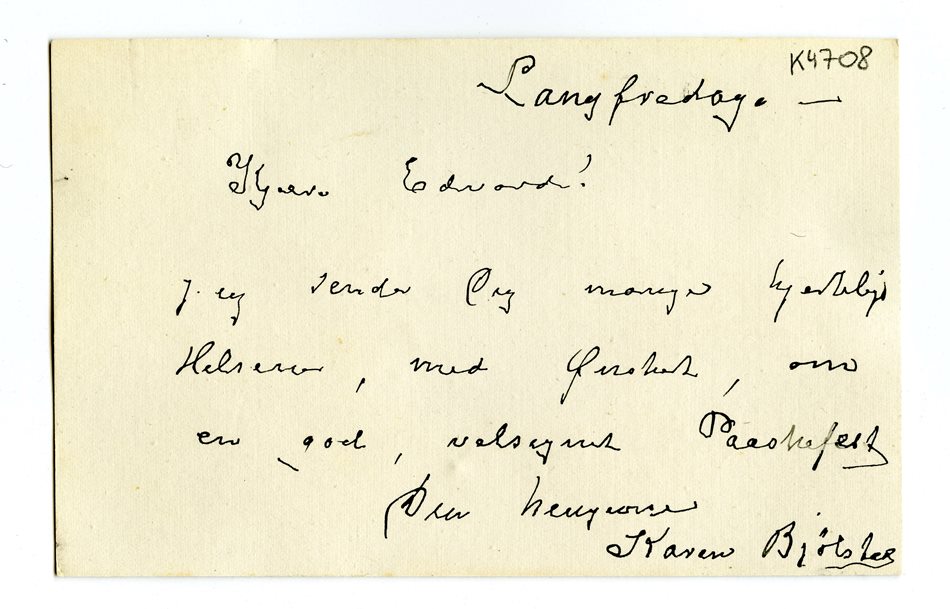 K4708
Langfredag. —
Kjære Edvard!
Jeg sender Dig mange hjertelige
Hilsener, med Ønsket, om
en god, velsignet Paaskefest
Din hengivne
Karen Bjölstad